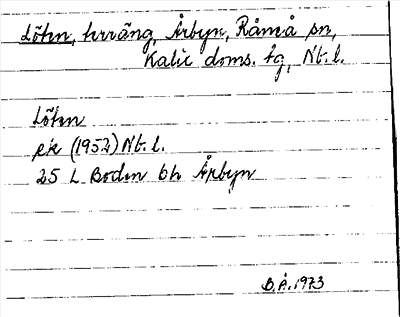 Löten, terräng, Årbyn, Råneå sn,
Kalix doms. tg, Nb. l.
Löten
ek (1952) Nb. l.
25 L Boden bh Årbyn
B.Å. 1973